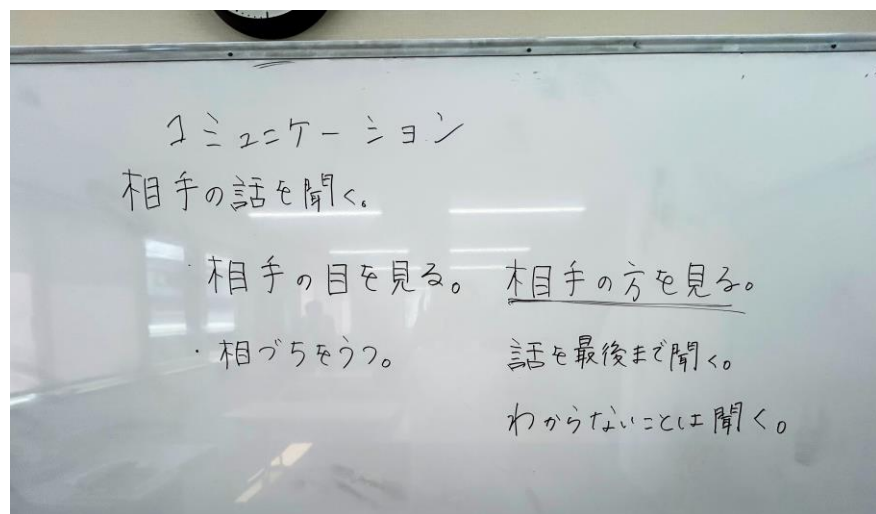 コミュニケーション
相手の話を聞く。
・相手の目を見る。 相手の方を見る。
・相づちをうつ。 話を最後まで聞く。
わからないことは聞く。